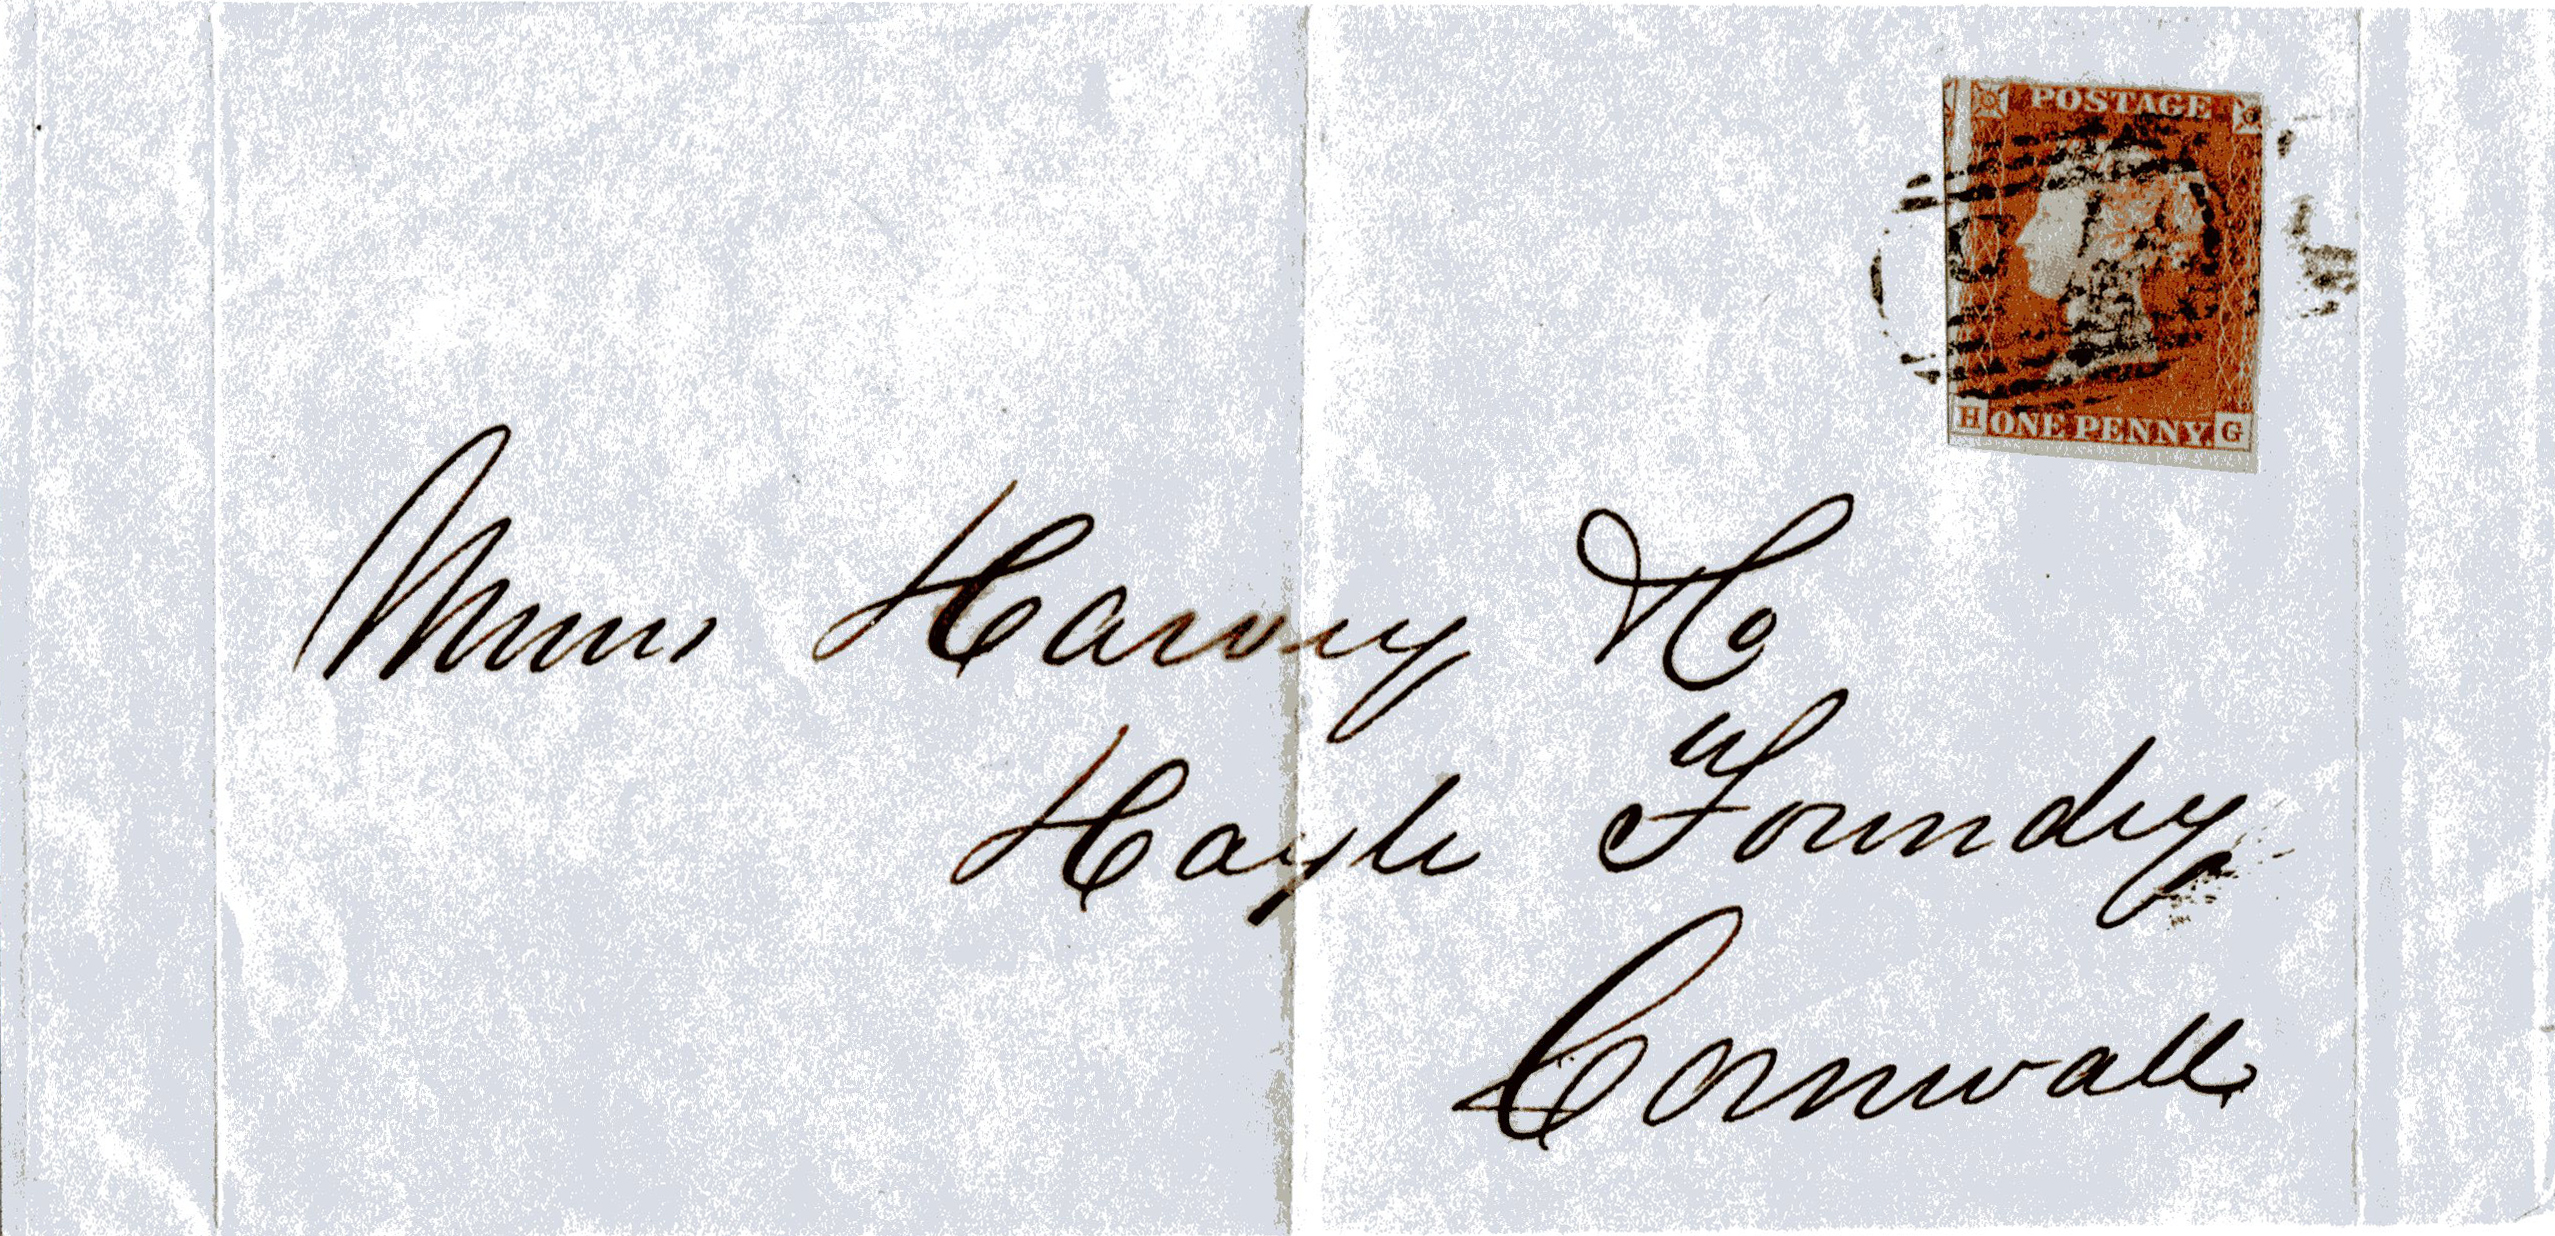 POSTAGE
H ONE PENNY. G
Messrs Harvey & Co
Hayle Foundry
Cornwall